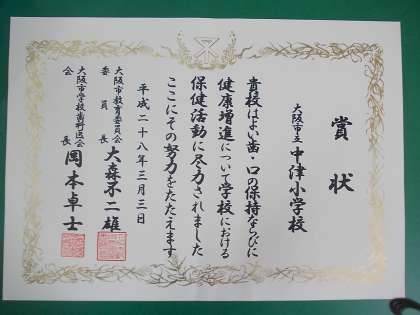 賞状
大阪市立 中津小学校
貴校はよい歯・口の保持ならびに
健康増進について学校における
保健活動に尽力されました
ここにその努力をたたえます
平成二十八年三月三日
大阪市教育委員会
委員長 大森不二雄
大阪市学校歯科医会
会長 岡本卓士